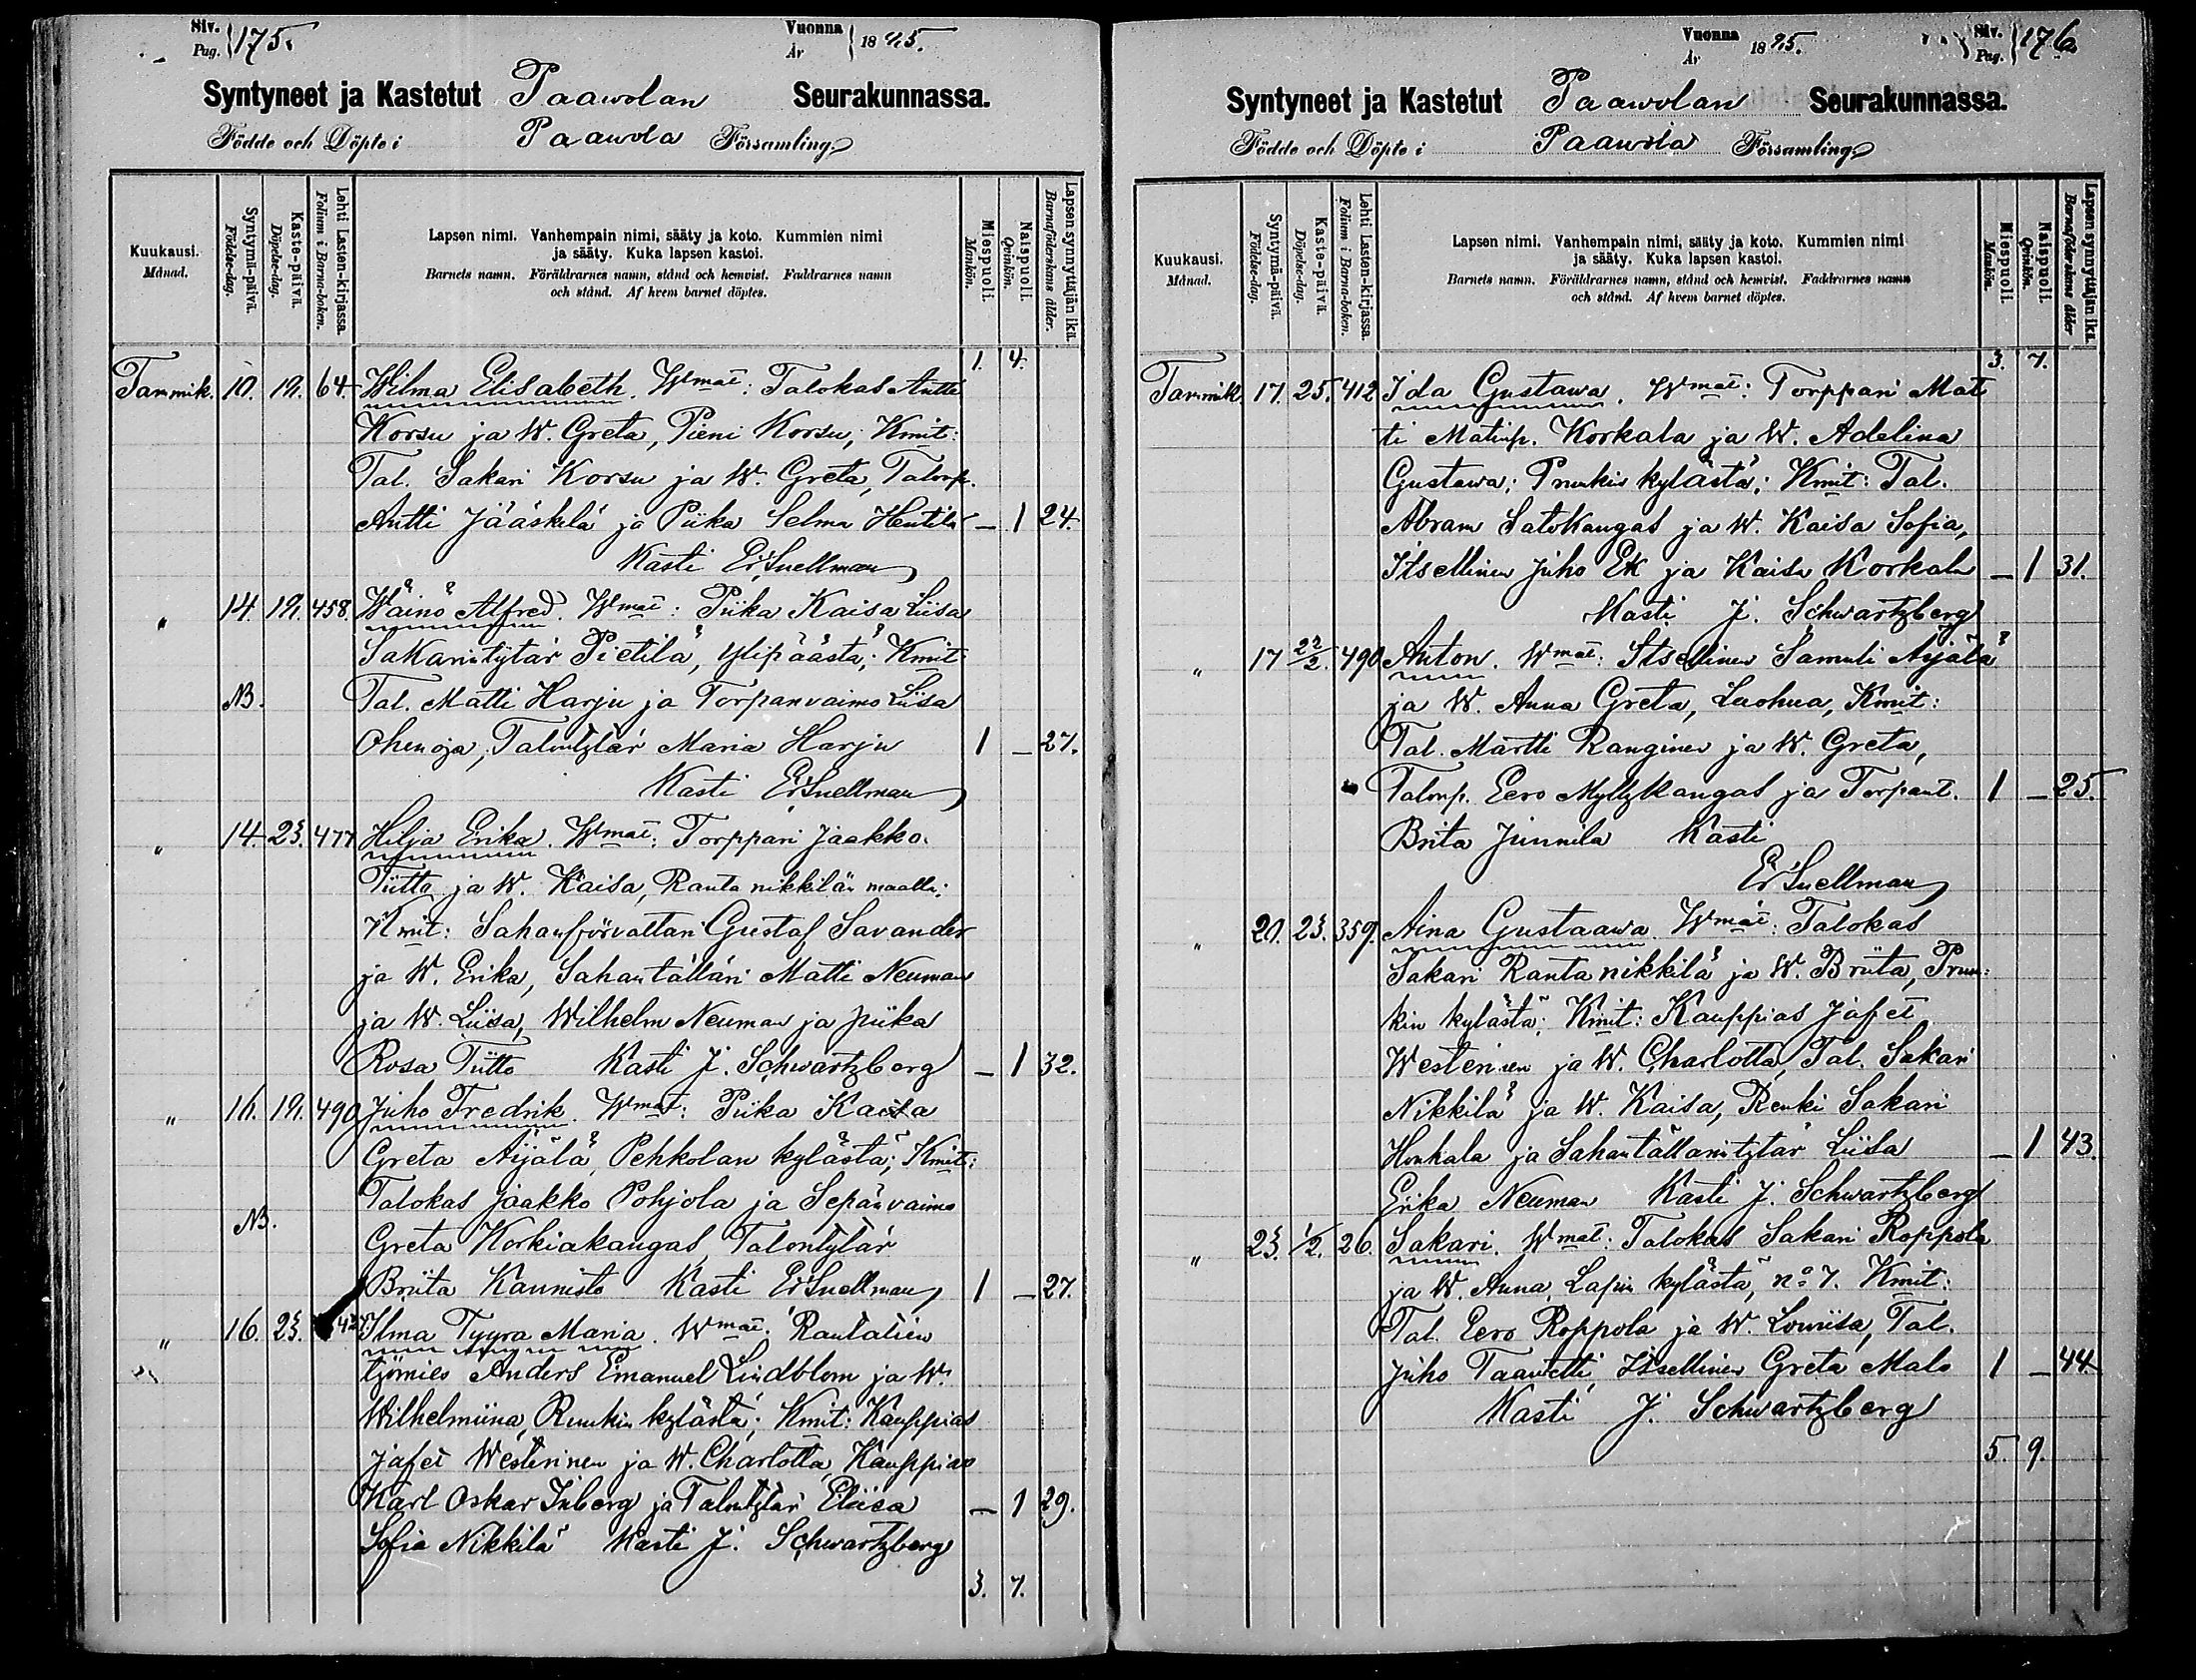 Siv. Pag. 175. Vuonna År 1895.
Syntyneet ja Kastetut Paawolan Seurakunnassa.
Födde och Döpte i Paawola Församling
Kuukausi. Månad.
Syntymä-päivä. Födelse-dag.
Kaste-päivä. Döpelse-dag.
Lehti Lasten-kirjassa. Folium i Barna-boken.
Lapsen nimi. Vanhempain nimi, sääty ja koto. Kummien nimi
ja sääty. Kuka lapsen kastoi.
Barnets namn. Föräldrarnes namn, stånd och hemvist. Faddrarnes namn
och stånd. Af hvem barnet döptes.
Miespuoli. Mankön.
Naispuoli. Qvinkön.
Lapsen synnyttäjän ikä. Barnaföderskans ålder.
1. 4.
Tammik. 10. 19. 64. Wilma Elisabeth. Wmat: Talokas Antti
Korsu ja W. Greta, Pieni Korsu; Kmit:
Tal. Sakari Korsu ja W. Greta, Talonp.
Antti Jääskelä ja Piika Selma Hentilä — 1 24.
Kasti Er Snellman
" 14. 19. 458. Wäinö Alfred. Wmat: Piika Kaisa Liisa
Sakarintytär Pietilä, Ylipäästä; Kmit
NB. Tal. Matti Harju ja Torpanvaimo Liisa
Ohenoja, Talontytär Maria Harju 1 — 27.
Kasti Er Snellman
" 14. 23. 477 Hilja Erika. Wmat: Torppari Jaakko
Tiitto ja W. Kaisa, Ranta nikkilän maalla;
Kmit: Sahanförvaltari Gustaf Savander
ja W. Erika, Sahantälläri Matti Neuman
ja W. Liisa, Wilhelm Neuman ja piika
Rosa Tiitto Kasti J. Schwartzberg — 1 32.
" 16. 19. 490 Juho Fredrik. Wmat: Piika Kaisa
Greta Äijälä, Pehkolan kylästä; Kmit:
Talokas Jaakko Pohjola ja Sepänvaimo
NB. Greta Korkiakangas, Talontytär
Briita Kaunisto Kasti Er Snellman 1 — 27.
" 16. 23. Ilma Tyyra Maria. Wmat: Rautatien
työmies Anders Emanuel Lindblom ja W.
Wilhelmiina, Ruukin kylästä; Kmit: Kauppias
Jafet Westerinen ja W. Charlotta, Kauppias
Karl Oskar Inberg ja Talontytär Eliisa — 1 29.
Sofia Nikkilä Kasti J. Schwartzberg
3. 7.
Vuonna År 1895. Siv. Pag. 176.
Syntyneet ja Kastetut Paawolan Seurakunnassa.
Födde och Döpte i Paawola Församling
Kuukausi. Månad.
Syntymä-päivä. Födelse-dag.
Kaste-päivä. Döpelse-dag.
Lehti Lasten-kirjassa. Folium i Barna-boken.
Lapsen nimi. Vanhempain nimi, sääty ja koto. Kummien nimi
ja sääty. Kuka lapsen kastoi.
Barnets namn. Föräldrarnes namn, stånd och hemvist. Faddrarnes namn
och stånd. Af hvem barnet döptes.
Miespuoli. Mankön.
Naispuoli. Qvinkön.
Lapsen synnyttäjän ikä. Barnaföderskans ålder
3. 7.
Tammik. 17. 25. 412 Ida Gustawa. Wmat: Torppari Mat
ti Matinp. Korkala ja W. Adelina
Gustawa; Ruukin kylästä; Kmit: Tal.
Abram Satokangas ja W. Kaisa Sofia,
Itsellinen Juho Ek ja Kaisa Korkala — 1 31.
Kasti J. Schwartzberg
" 17 22/2. 490 Anton. Wmat: Itsellinen Samuli Äijälä
ja W. Anna Greta, Luohua, Kmit:
Tal. Martti Ranginen ja W. Greta,
Talonp. Eero Myllykangas ja Torpant. 1 — 25.
Brita Junnila Kasti
Er Snellman
" 20. 23. 359. Aina Gustaawa. Wmat: Talokas
Sakari Ranta nikkilä ja W. Briita, Ruu-
kin kylästä; Kmit: Kauppias Jafet
Westerinen ja W. Charlotta, Tal. Sakari
Nikkilä ja W. Kaisa, Renki Sakari
Honkala ja Sahantällärintytär Liisa — 1 43.
Erika Neuman Kasti J. Schwartzberg
" 23. 1/2. 26. Sakari. Wmat: Talokas Sakari Roppola
ja W. Anna, Lapin kylästä, no 7. Kmit:
Tal. Eero Roppola ja W. Lowiisa, Tal.
Juho Taavetti, Itsellinen Greta Malo 1 — 44.
Kasti J. Schwartzberg
5. 9.